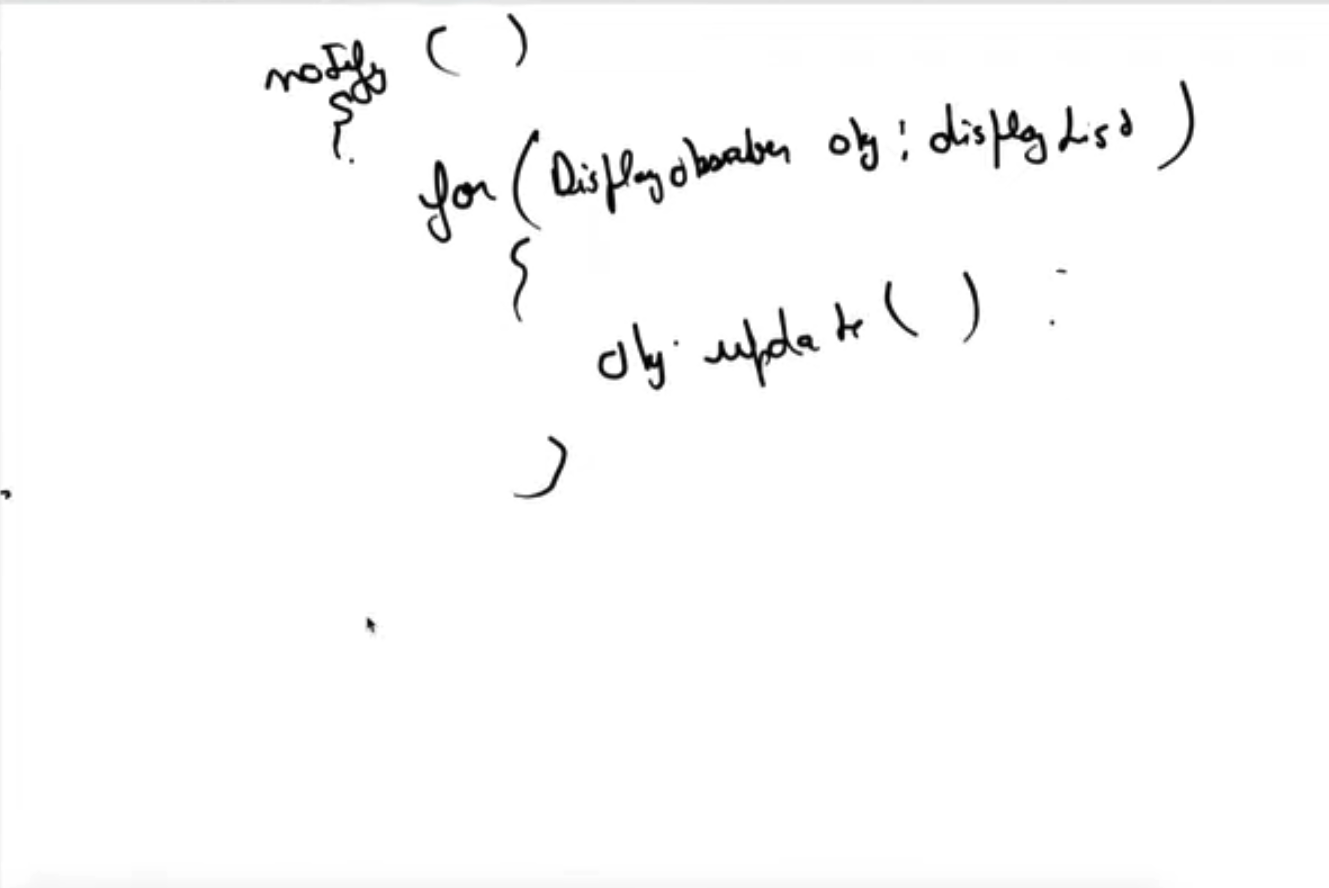 notify ( )
{
for ( Displayobserver obj : displayList )
{
obj.update ( ) ;
}